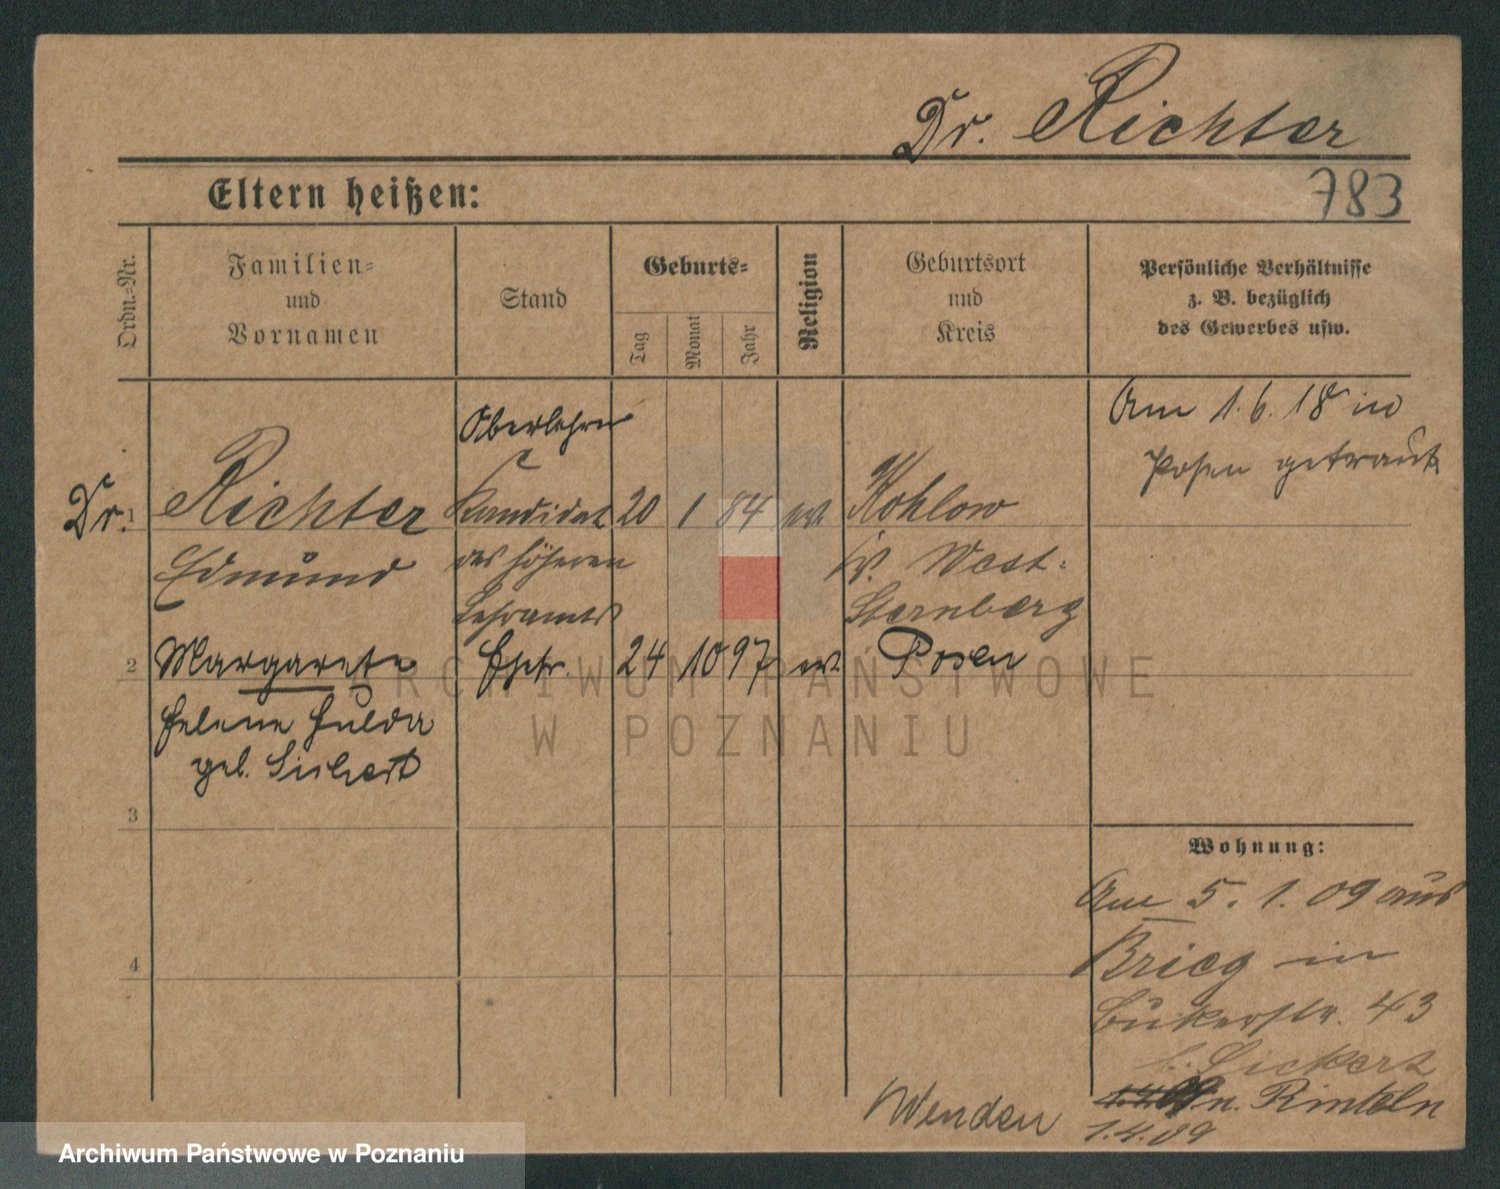 Dr. Richter
Eltern heißen:
783
Ordn.=Nr.
Familien=
und
Vornamen
Stand
Geburts=
Tag
Monat
Jahr
Religion
Geburtsort
und
Kreis
Persönliche Verhältnisse
z. B. bezüglich
des Gewerbes usw.
Am 1. 6. 18 in
Posen getraut
Oberlehrer
Dr. 1 Richter Kandidat 20 1 84 ev. Kohlow
Edmund des höheren Kr. West-
Lehramts Sternberg
2 Margarete Ehefr. 24 10 97 ev. Posen
Helene Hulda
geb. Sickert
3
Wohnung:
Am 5. 1. 09 aus
4
Brieg in
Bukerstr. 43
b. Sickert
n. Rinteln
Wenden
1.4.09
ARCHIWUM PAŃSTWOWE
W POZNANIU
Archiwum Państwowe w Poznaniu